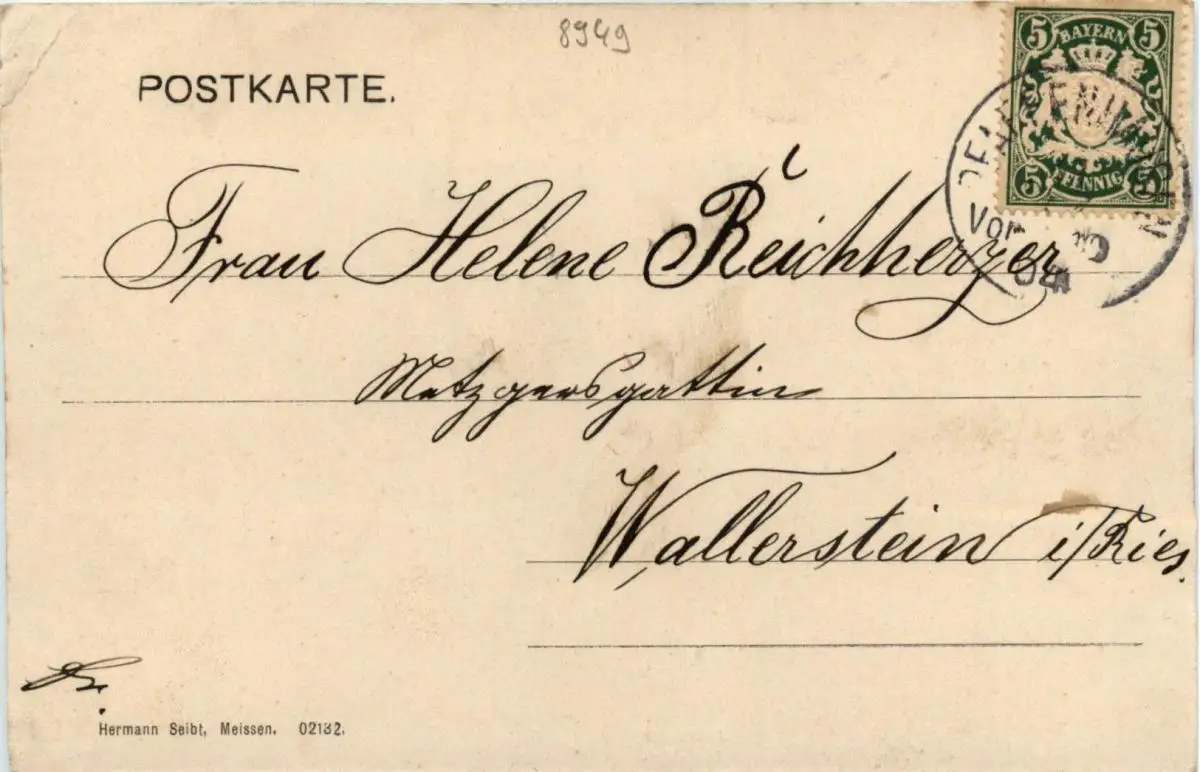 8949
POSTKARTE.
5 BAYERN 5
5 PFENNIG 5
Vor
04
Frau Helene Reichherzer
Metzgersgattin
Wallerstein i/Ries.
Hermann Seibt, Meissen. 02132.